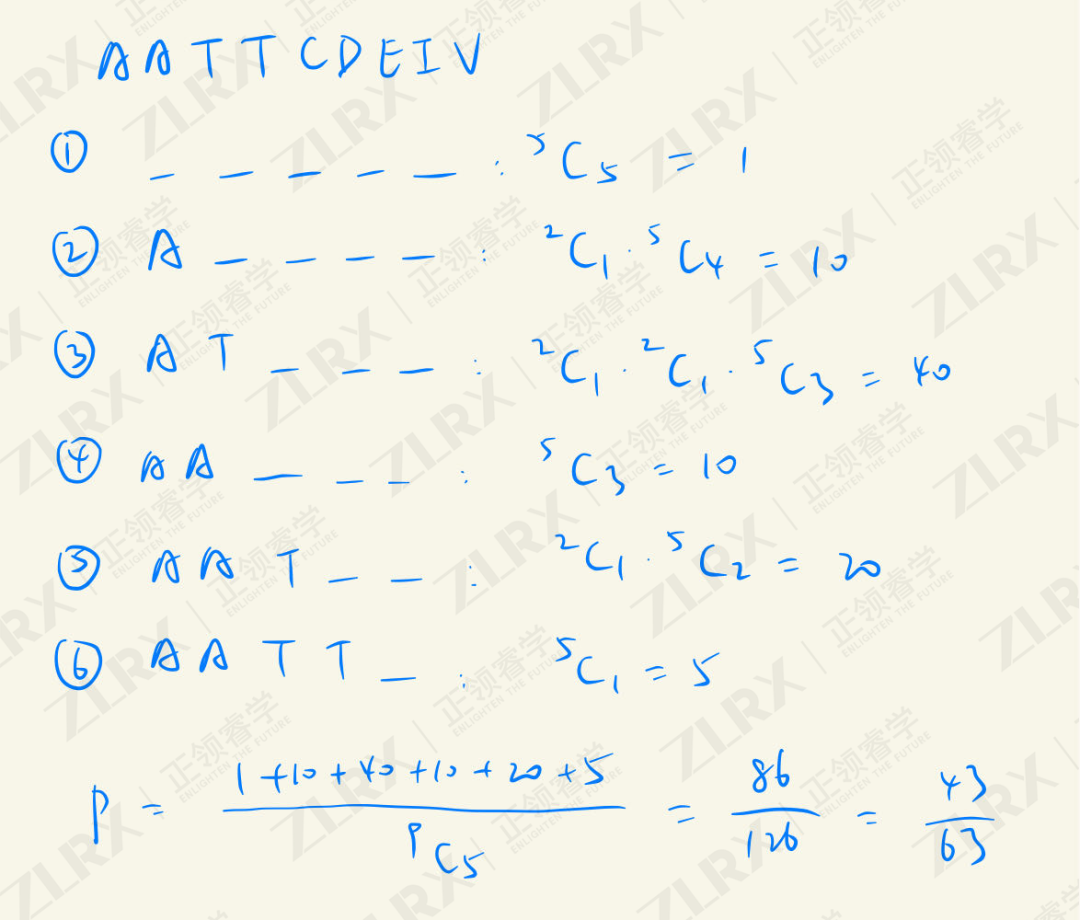 A A T T C D E I V
① _ _ _ _ _ : ⁵C₅ = 1
② A _ _ _ _ : ²C₁ · ⁵C₄ = 10
③ A T _ _ _ : ²C₁ · ²C₁ · ⁵C₃ = 40
④ A A _ _ _ : ⁵C₃ = 10
⑤ A A T _ _ : ²C₁ · ⁵C₂ = 20
⑥ A A T T _ : ⁵C₁ = 5
P = (1 + 10 + 40 + 10 + 20 + 5) / ⁹C₅ = 86/126 = 43/63
ZLRX | 正领睿学 ENLIGHTEN THE FUTURE